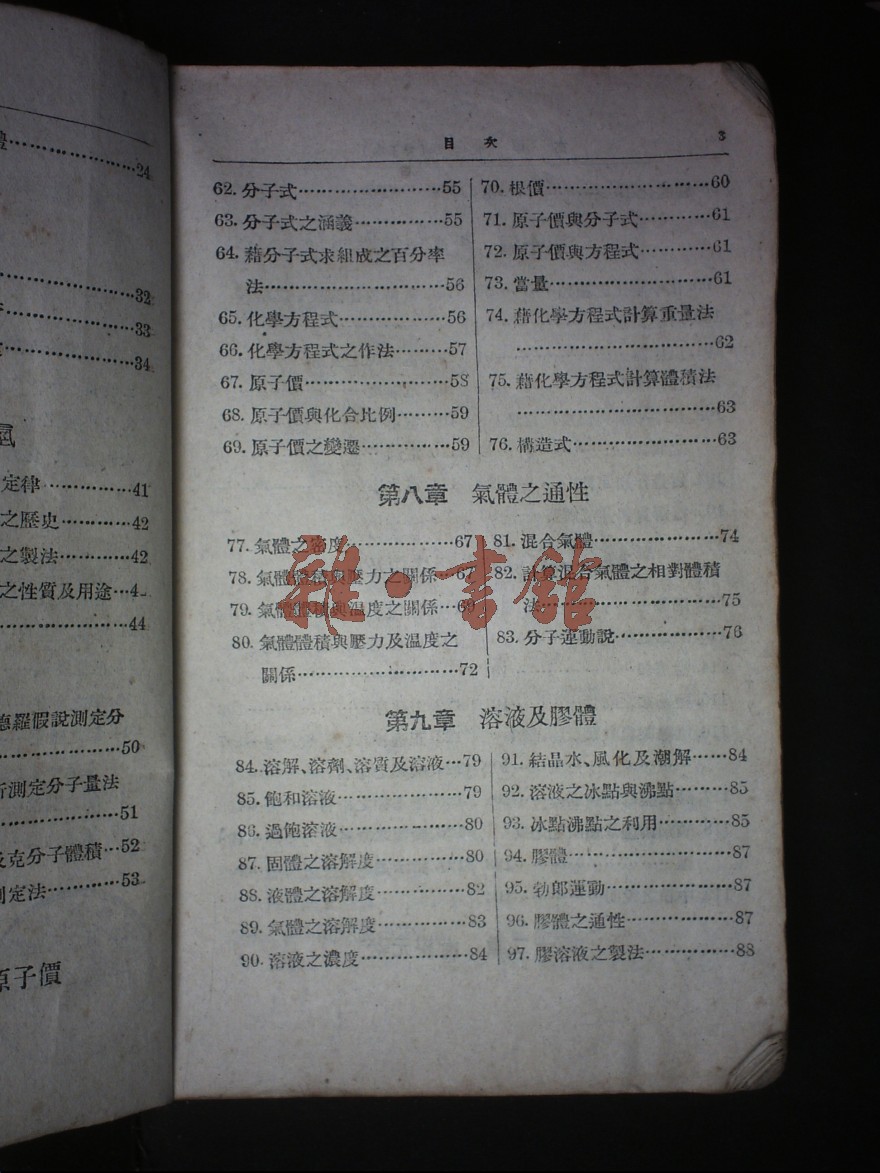 24
32
33
34
定律…………41
之歷史………42
之製法………42
之性質及用途…4
………………44
德羅假說測定分
………………50
測定分子量法
………………51
克分子體積…52
測定法………53
原子價
目 次 3
62. 分子式……………………55
63. 分子式之涵義……………55
64. 藉分子式求組成之百分率
法…………………………56
65. 化學方程式………………56
66. 化學方程式之作法………57
67. 原子價……………………58
68. 原子價與化合比例………59
69. 原子價之變遷……………59
70. 根價………………………60
71. 原子價與分子式…………61
72. 原子價與方程式…………61
73. 當量………………………61
74. 藉化學方程式計算重量法
……………………………62
75. 藉化學方程式計算體積法
……………………………63
76. 構造式……………………63
第八章 氣體之通性
77. 氣體之密度………………67
78. 氣體體積與壓力之關係…67
79. 氣體體積與温度之關係…69
80. 氣體體積與壓力及温度之
關係………………………72
81. 混合氣體…………………74
82. 計算混合氣體之相對體積
法…………………………75
83. 分子運動說………………76
雜·書館
第九章 溶液及膠體
84. 溶解、溶劑、溶質及溶液…79
85. 飽和溶液…………………79
86. 過飽溶液…………………80
87. 固體之溶解度……………80
88. 液體之溶解度……………82
89. 氣體之溶解度……………83
90. 溶液之濃度………………84
91. 結晶水、風化及潮解……84
92. 溶液之冰點與沸點………85
93. 冰點沸點之利用…………85
94. 膠體………………………87
95. 勃郎運動…………………87
96. 膠體之通性………………87
97. 膠溶液之製法……………88